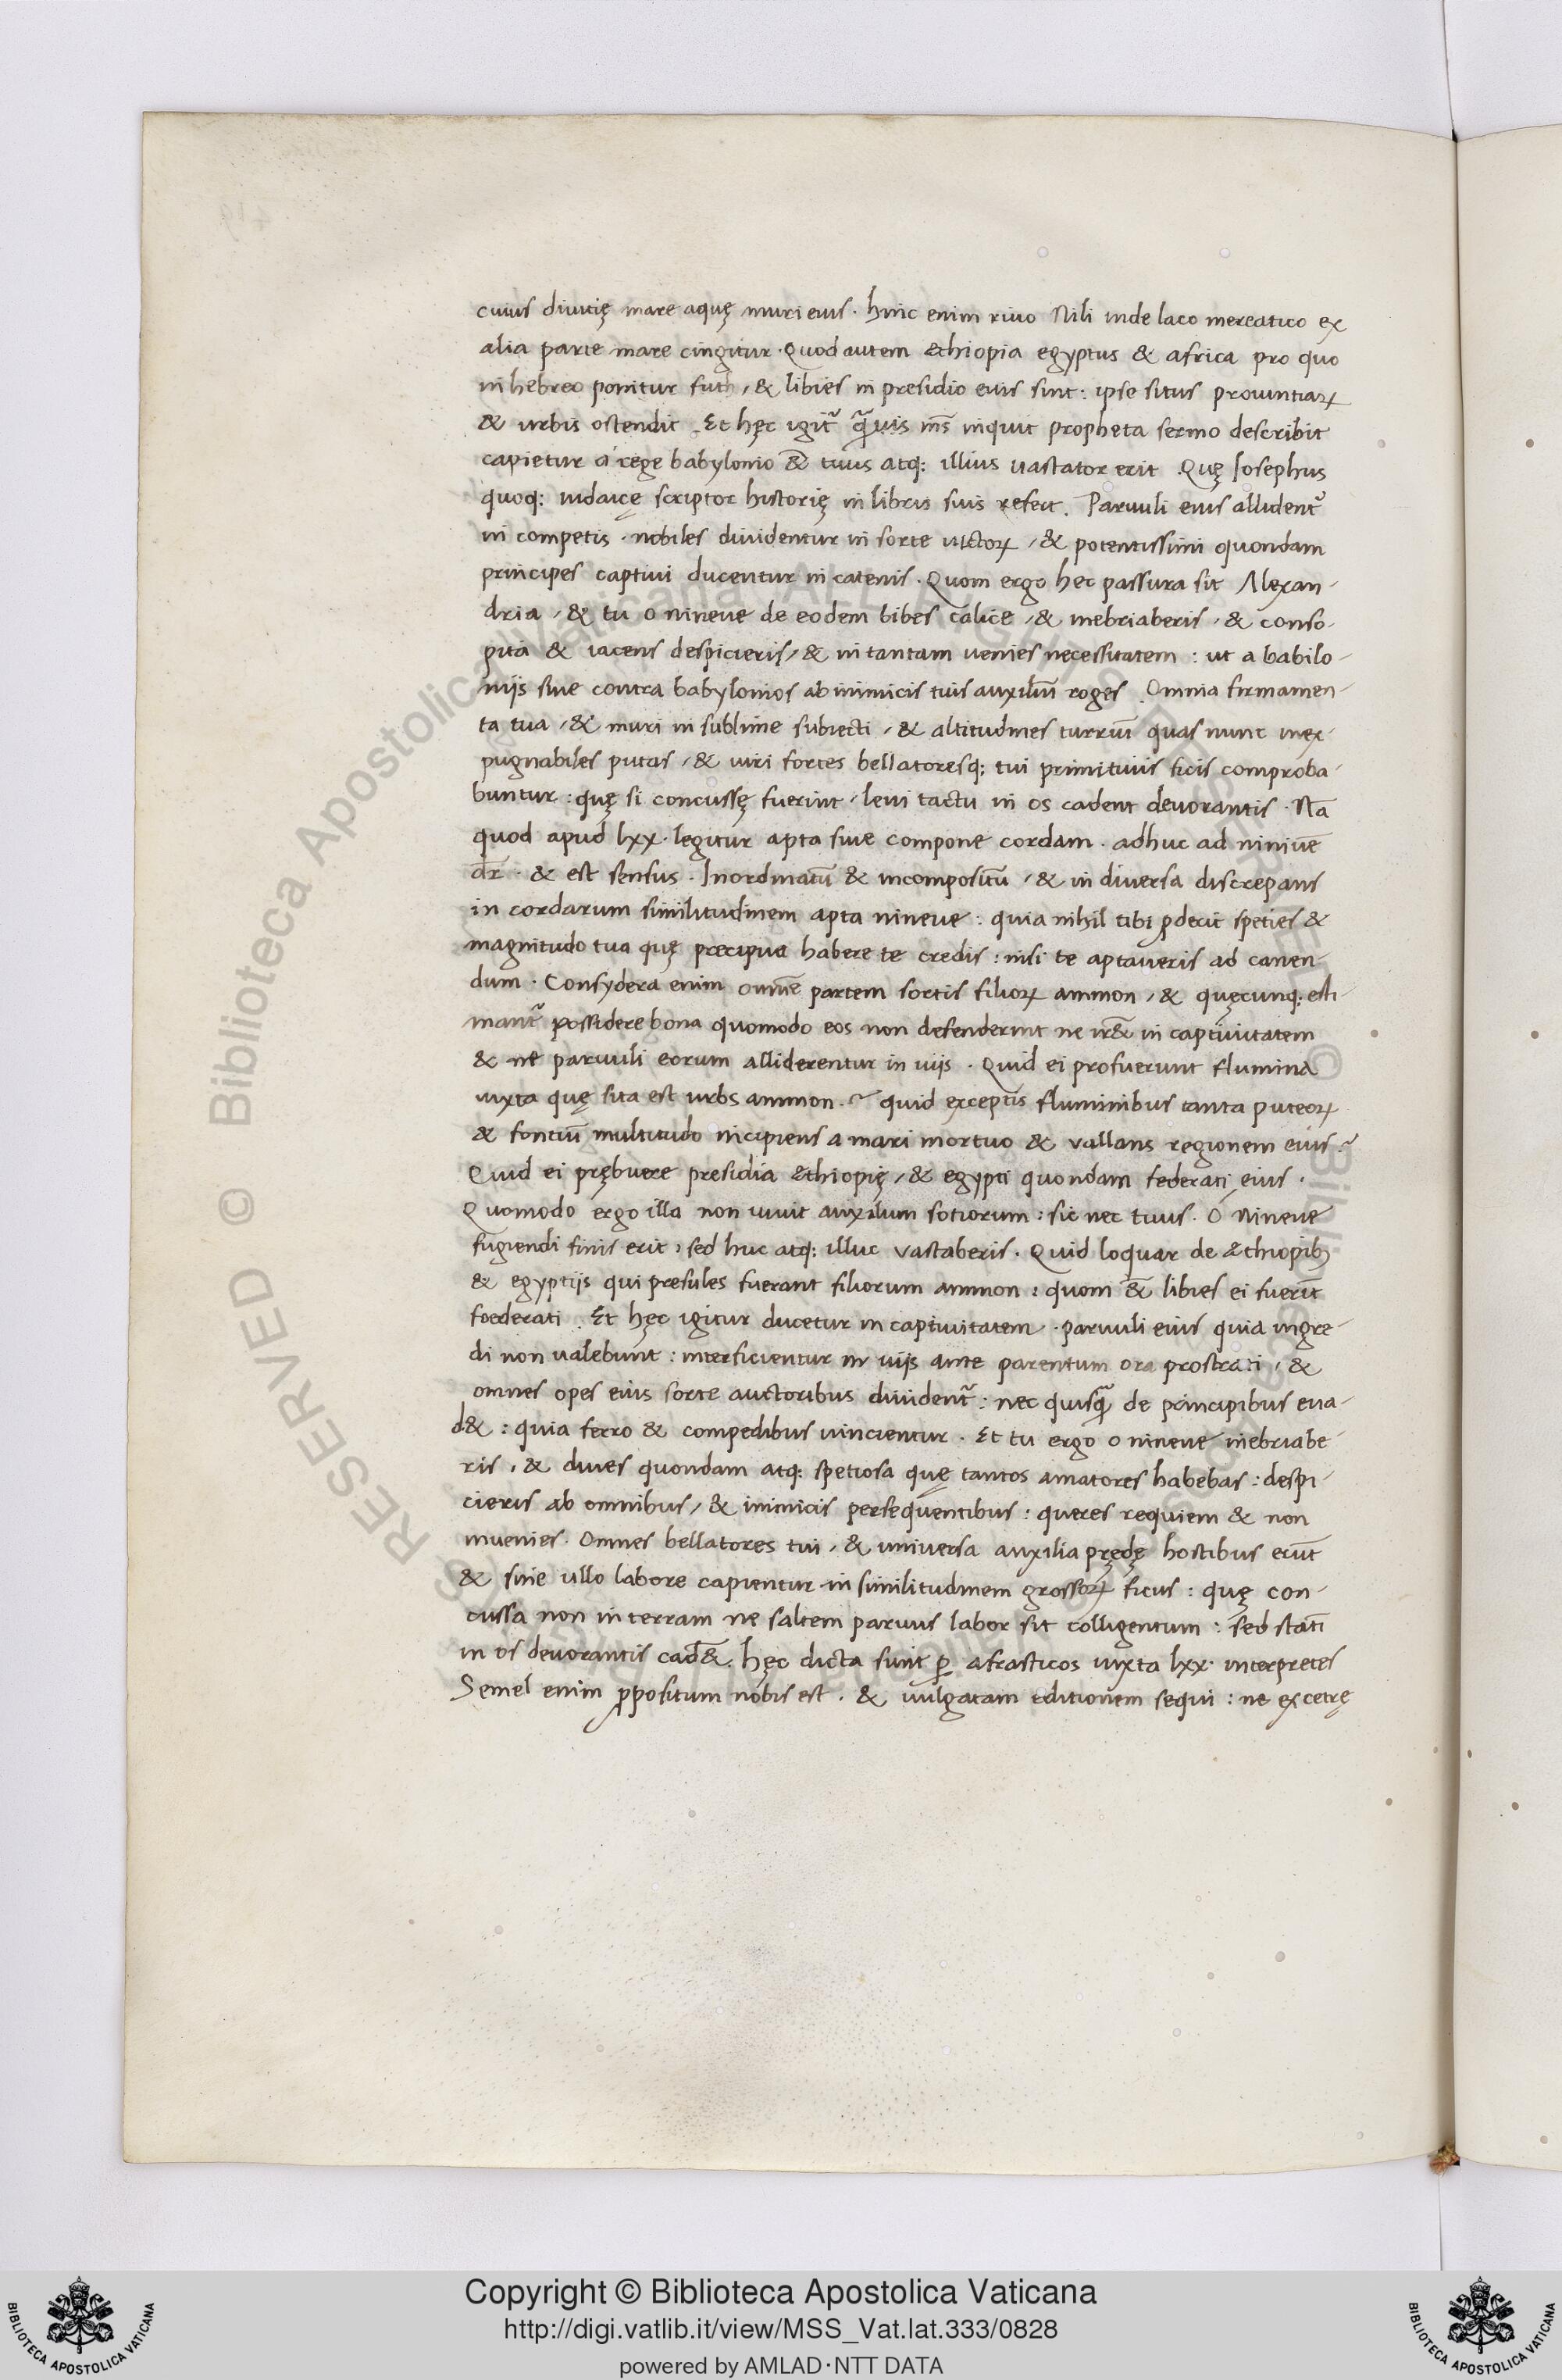 cuius diuitię mare aquę muri eius · hinc enim riuo Nili inde laco mereatico ex
alia parte mare cingitur · Quod autem &thiopia egyptus & africa pro quo
in hebreo ponitur futh , & libies in presidio eius sint : ipse situs prouintiaꝝ
& urbis ostendit . Et hęc igit᷑ q̃uis m̄s inquit propheta sermo describit
capietur a rege babylonio &̄ tuus atq; illius uastator erit Quę Iosephus
quoq; iudaicę scriptor historię in libris suis refert . Paruuli eius allident᷑
in competis · nobiles diuidentur in sorte uictoꝝ , & potentissimi quondam
principes captiui ducentur in catenis . Quom ergo hec passura sit Alexan-
dria , & tu o nineue de eodem bibes calice , & inebriaberis , & conso-
pita & iacens despicieris , & in tantam uenies necessitatem : ut a babilo-
nijs siue contra babylonios ab inimicis tuis auxiliū roges . Omnia firmamen-
ta tua , & muri in sublime subiecti , & altitudines turriū quas nunc inex-
pugnabiles putas , & uiri fortes bellatoresq; tui primitiuis ficis comproba-
buntur : quę si concussę fuerint , leui tactu in os cadent deuorantis . Nā
quod apud lxx · legitur apta siue compone cordam . adhuc ad niniuē
dr̄ . & est sensus . Inordinatū & incompositū , & in diuersa discrepans
in cordarum similitudinem apta nineue : quia nihil tibi ꝓderit speties &
magnitudo tua quę precipua habere te credis : nisi te aptaueris ad canen-
dum . Consydera enim omnē partem sortis filioꝝ ammon , & quęcunq; esti-
mant᷑ possidere bona quomodo eos non defenderint ne ir&̄ in captiuitatem
& ne paruuli eorum alliderentur in uijs . Quid ei profuerunt flumina
iuxta quę sita est urbs ammon . ~ quid exceptis fluminibus tanta puteoꝝ
& fontiū multitudo incipiens a mari mortuo & vallans regionem eius ?
Quid ei prębuere presidia &thiopię , & egypti quondam federati eius .
Quomodo ergo illa non iuuit auxilium sotiorum : sic nec tuus . O Nineue
fugiendi finis erit , sed huc atq; illuc vastaberis . Quid loquar de &thiopib;
& egyptijs qui presules fuerant filiorum ammon : quom &̄ libies ei fuerīt
foederati . Et hęc igitur ducetur in captiuitatem . paruuli eius quia ingre-
di non ualebunt : interficientur in uijs ante parentum ora prostrati , &
omnes opes eius sorte auctoribus diuident᷑ : nec quisq̃ de principibus eua-
d& : quia ferro & compedibus uincientur . Et tu ergo o nineue inebriabe-
ris , & diues quondam atq; spetiosa quę tantos amatores habebas : despi-
cieris ab omnibus , & inimicis persequentibus : queres requiem & non
inuenies . Omnes bellatores tui , & universa auxilia prędę hostibus erūt
& sine ullo labore capientur in similitudinem grossoꝝ ficus : quę con-
cussa non in terram ne saltem paruus labor sit colligentum : sed statī
in os deuorantis cad&̄ . hęc dicta sunt ꝑ afrasticos iuxta lxx · interpretes
Semel enim ꝓpositum nobis est . & uulgatam editionem sequi : ne excetrę
© Biblioteca Apostolica Vaticana
Copyright © Biblioteca Apostolica Vaticana
http://digi.vatlib.it/view/MSS_Vat.lat.333/0828
powered by AMLAD·NTT DATA
BIBLIOTECA APOSTOLICA VATICANA
BIBLIOTECA APOSTOLICA VATICANA